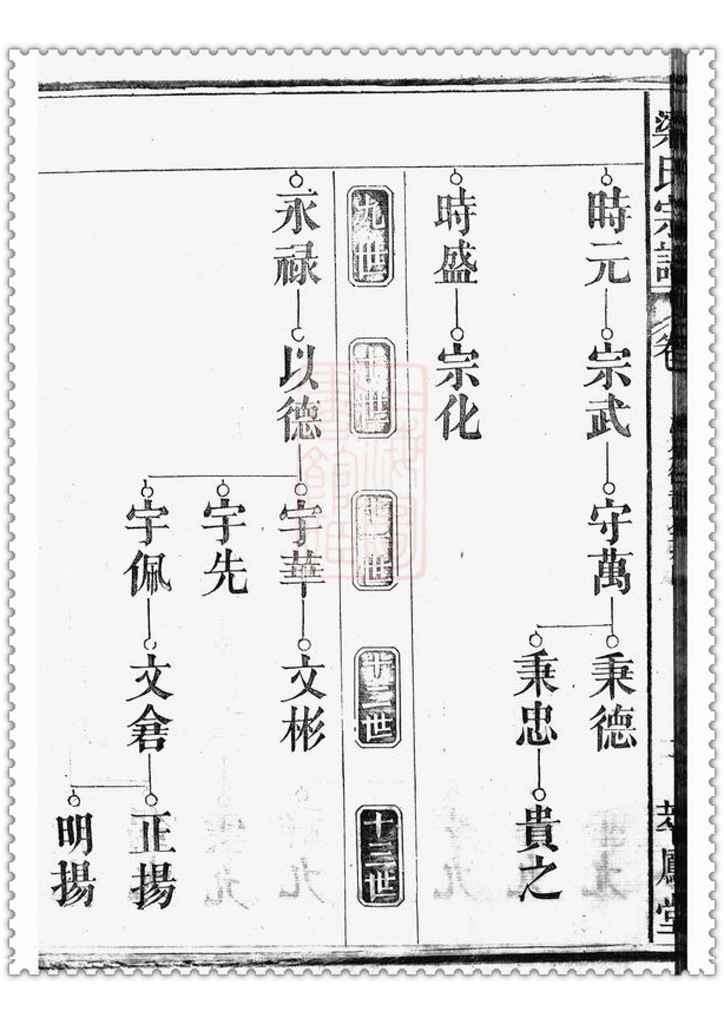 梁氏宗譜
卷
鳳堂
時元
宗武
守萬
秉德
秉忠
貴之
時盛
宗化
九世
十世
十一世
十二世
十三世
永禄
以德
宇華
文彬
宇先
宇佩
文倉
正揚
明揚